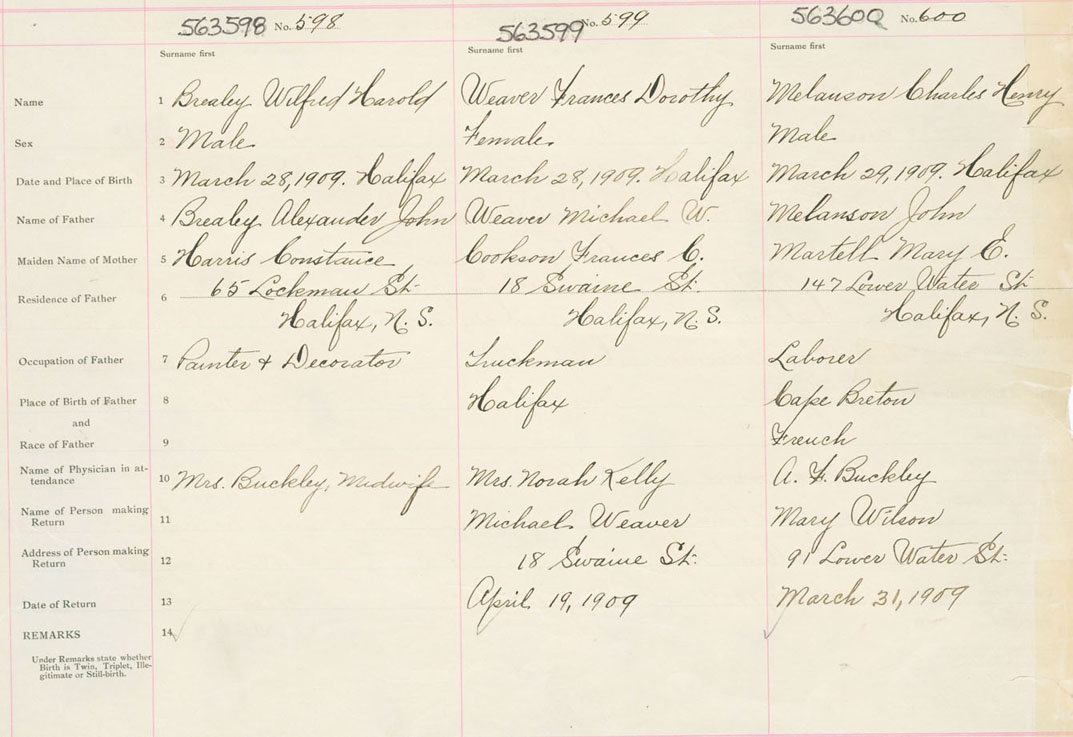 563598 No. 598 563599 No. 599 563600 No. 600
Surname first Surname first Surname first
Name 1 Brealey Wilfred Harold Weaver Frances Dorothy Melanson Charles Henry
Sex 2 Male Female Male
Date and Place of Birth 3 March 28, 1909. Halifax March 28, 1909. Halifax March 29, 1909. Halifax
Name of Father 4 Brealey Alexander John Weaver Michael W. Melanson John
Maiden Name of Mother 5 Harris Constance Cookson Frances C. Martell Mary E.
Residence of Father 6 65 Lockman St. 18 Swaine St. 147 Lower Water St.
Halifax, N.S. Halifax, N.S. Halifax, N.S.
Occupation of Father 7 Painter & Decorator Truckman Laborer
Place of Birth of Father 8 Halifax Cape Breton
and
Race of Father 9 French
Name of Physician in at-
tendance 10 Mrs. Buckley, Midwife Mrs. Norah Kelly A. F. Buckley
Name of Person making
Return 11 Michael Weaver Mary Wilson
Address of Person making
Return 12 18 Swaine St. 91 Lower Water St.
Date of Return 13 April 19, 1909 March 31, 1909
REMARKS 14
Under Remarks state whether
Birth is Twin, Triplet, Ille-
gitimate or Still-birth.